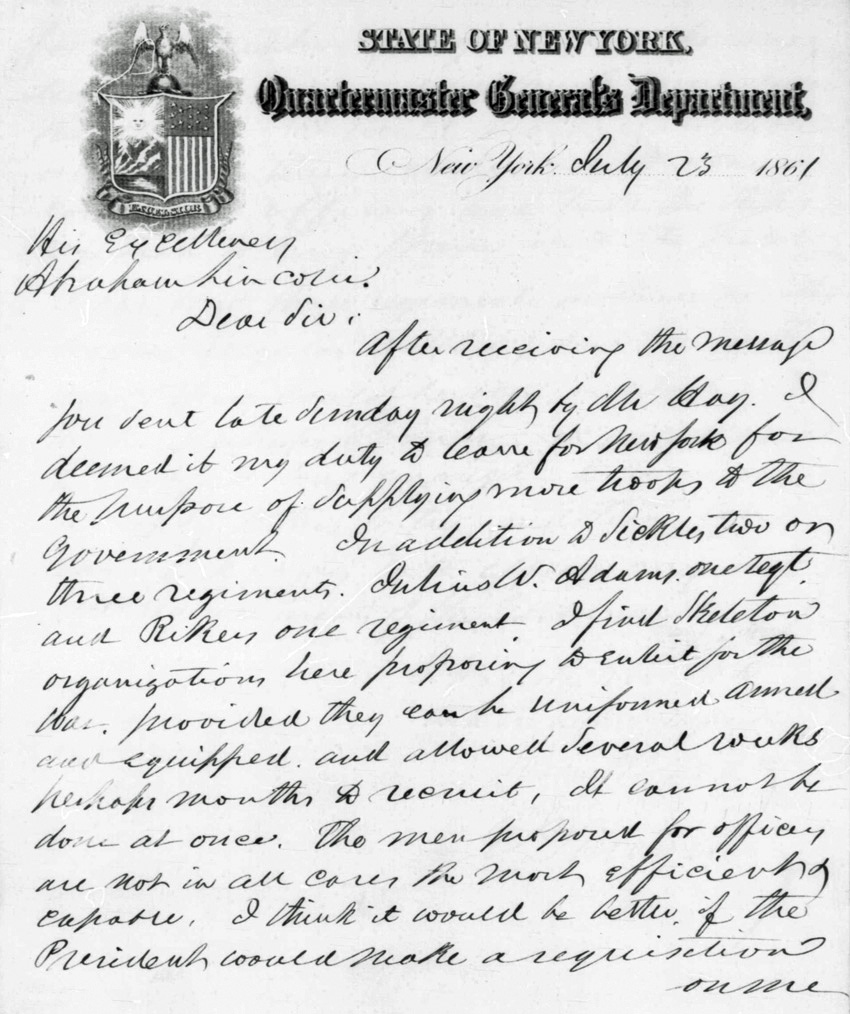 STATE OF NEW YORK,
Quartermaster General's Department,
New York July 23 1861
EXCELSIOR
His Excellency
Abraham Lincoln.
Dear Sir:
After receiving the message
you sent late Sunday night by Mr Hay. I
deemed it my duty to leave for New York for
the purpose of supplying more troops to the
Government. In addition to Sickles two or
three regiments. Julius W. Adams. one regt.
and Rikers one regiment. I find Skeleton
organizations here proposing to enlist for the
War. provided they can be uniformed armed
and equipped. and allowed several weeks
perhaps months to recruit, It cannot be
done at once. The men proposed for officers
are not in all cases the most efficient &
capable. I think it would be better. if the
President would make a requisition
on me